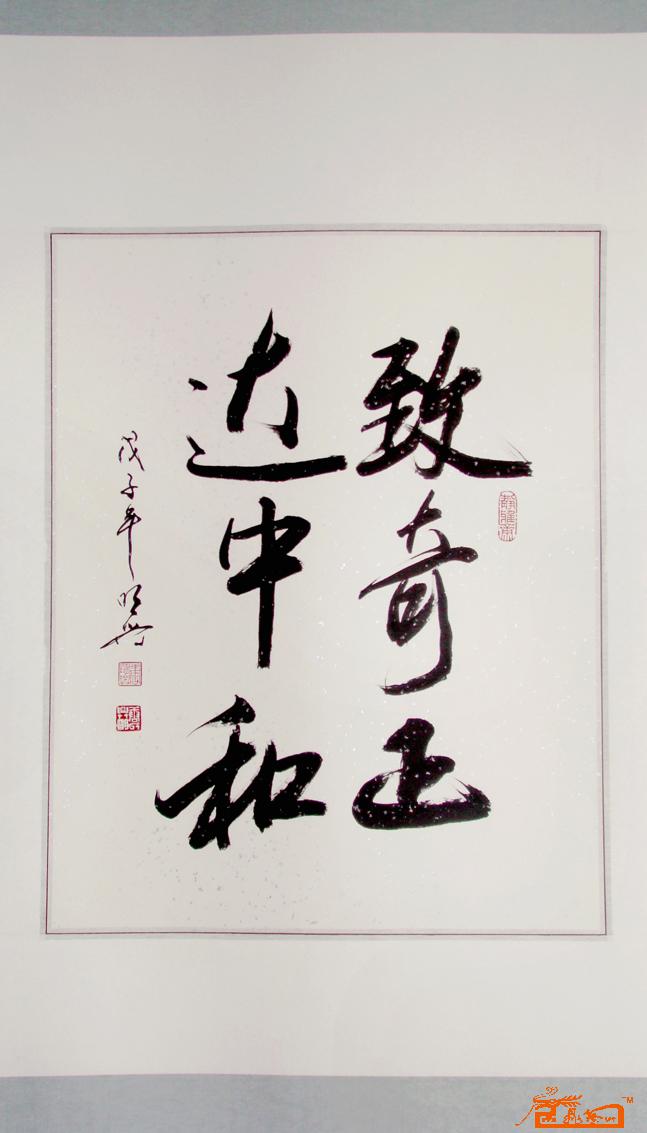 致奇正
达中和
戊子年 明兴